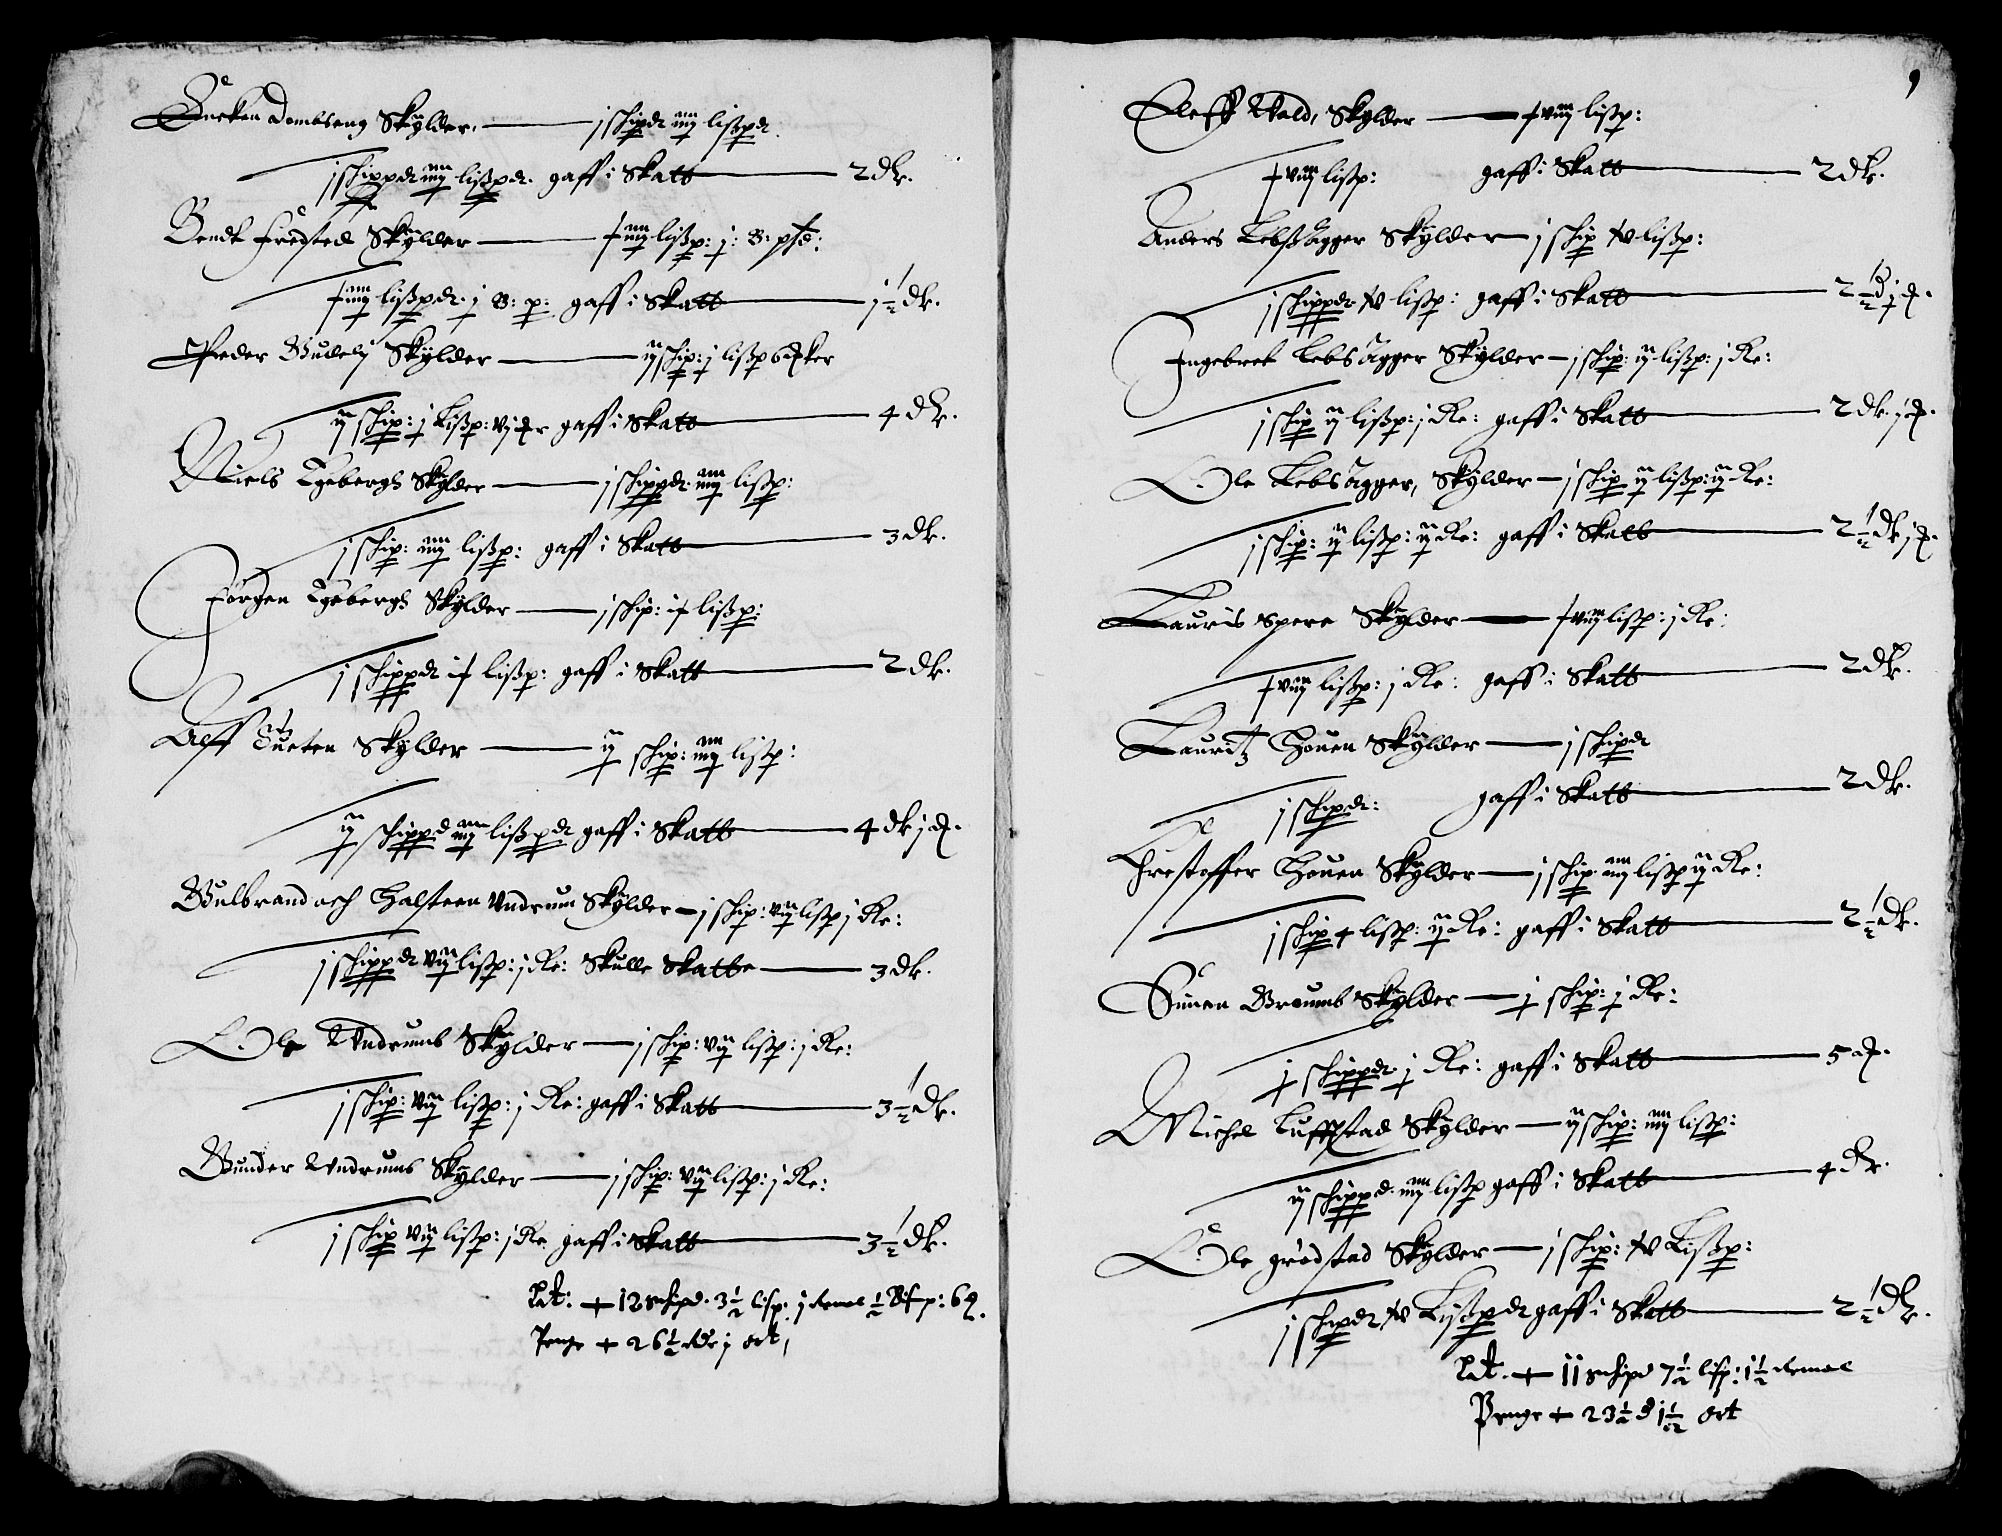 Dombseng Skylder, — j schipdt iiij lißpdt.
j schippdt iiij lißpdt. gaff i Skatt — 2 dlr.
Bendt Fredsted Skylder — iiij lißp: j: B: pfd:
iiij lißpdt. j B: p: gaff i Skatt — 1½ dlr.
Peder Skylder — ij schip: j lißp 6 ker
ij schip: j Lißp: vj gaff i Skatt — 4 dlr.
Niels Egebergh Skylder — j schippdt iiij lißp:
j schip: iiij lißp: gaff i Skatt — 3 dlr.
Jørgen Egebergh Skylder — j schip: lißp:
j schippdt lißp: gaff i Skatt — 2 dlr.
Alff Tueten Skylder — ij schip: iiij lißp:
ij schippd iiij lißpdt gaff i Skatt — 4 dlr j
Gulbrand och Halsteen Undrum Skylder — j schip: vij lißp j Re:
j schippdt vij lißp: j Re: Skulle Skatte — 3 dlr.
Ole Undrumb Skylder — j schip: vij lißp: j Re:
j schip: vij lißp: j Re: gaff i Skatt — 3½ dlr.
Gunder Undrumb Skylder — j schip: vij lißp: j Re:
j schip vij lißp: j Re gaff i Skatt — 3½ dlr.
Lat: + 12 schipd. 3½ lisp: j ½ Bisp: 6
Penge + 26½ dlr j ort,
9
Oleff Wald, Skylder — viij lißp:
viij lißp: gaff i Skatt — 2 dlr.
Anders Lebsågger Skylder — j schip xv lißp:
j schippdt xv lißp: gaff i Skatt — 2½ d j
Ingebret Lebsågger Skylder — j schip: ij lißp: j Re:
j schip ij lißp: j Re: gaff i Skatt — 2 dlr. j
Ole Lebsågger, Skylder — j schip ij lißp: ij Re:
j schip: ij lißp: ij Re: gaff i Skatt — 2½ dlr j
Lauris Spere Skylder — viij lißp: j Re:
viij lißp: j Re: gaff i Skatt — 2 dlr.
Lauritz Houen Skylder — j schipdt
j schipdt: gaff i Skatt — 2 dlr.
Christoffer Houen Skylder — j schip iiij lißp ij Re:
j schip 4 lißp: ij Re: gaff i Skatt — 2½ dlr.
Simen Skylder — j schip: j Re:
j schippdt j Re: gaff i Skatt — 5
Michel Luffstad Skylder — ij schip: iiij lißp:
ij schippd. iiij lißp gaff i Skatt — 4 dlr.
Ole grødstad Skylder — j schip: xv Lißp:
j schipdt xv Lißpdt gaff i Skatt — 2½ dlr.
Lat. + 11 schipd 7½ lisp: 1½
Penge + 23½ d 1½ ort